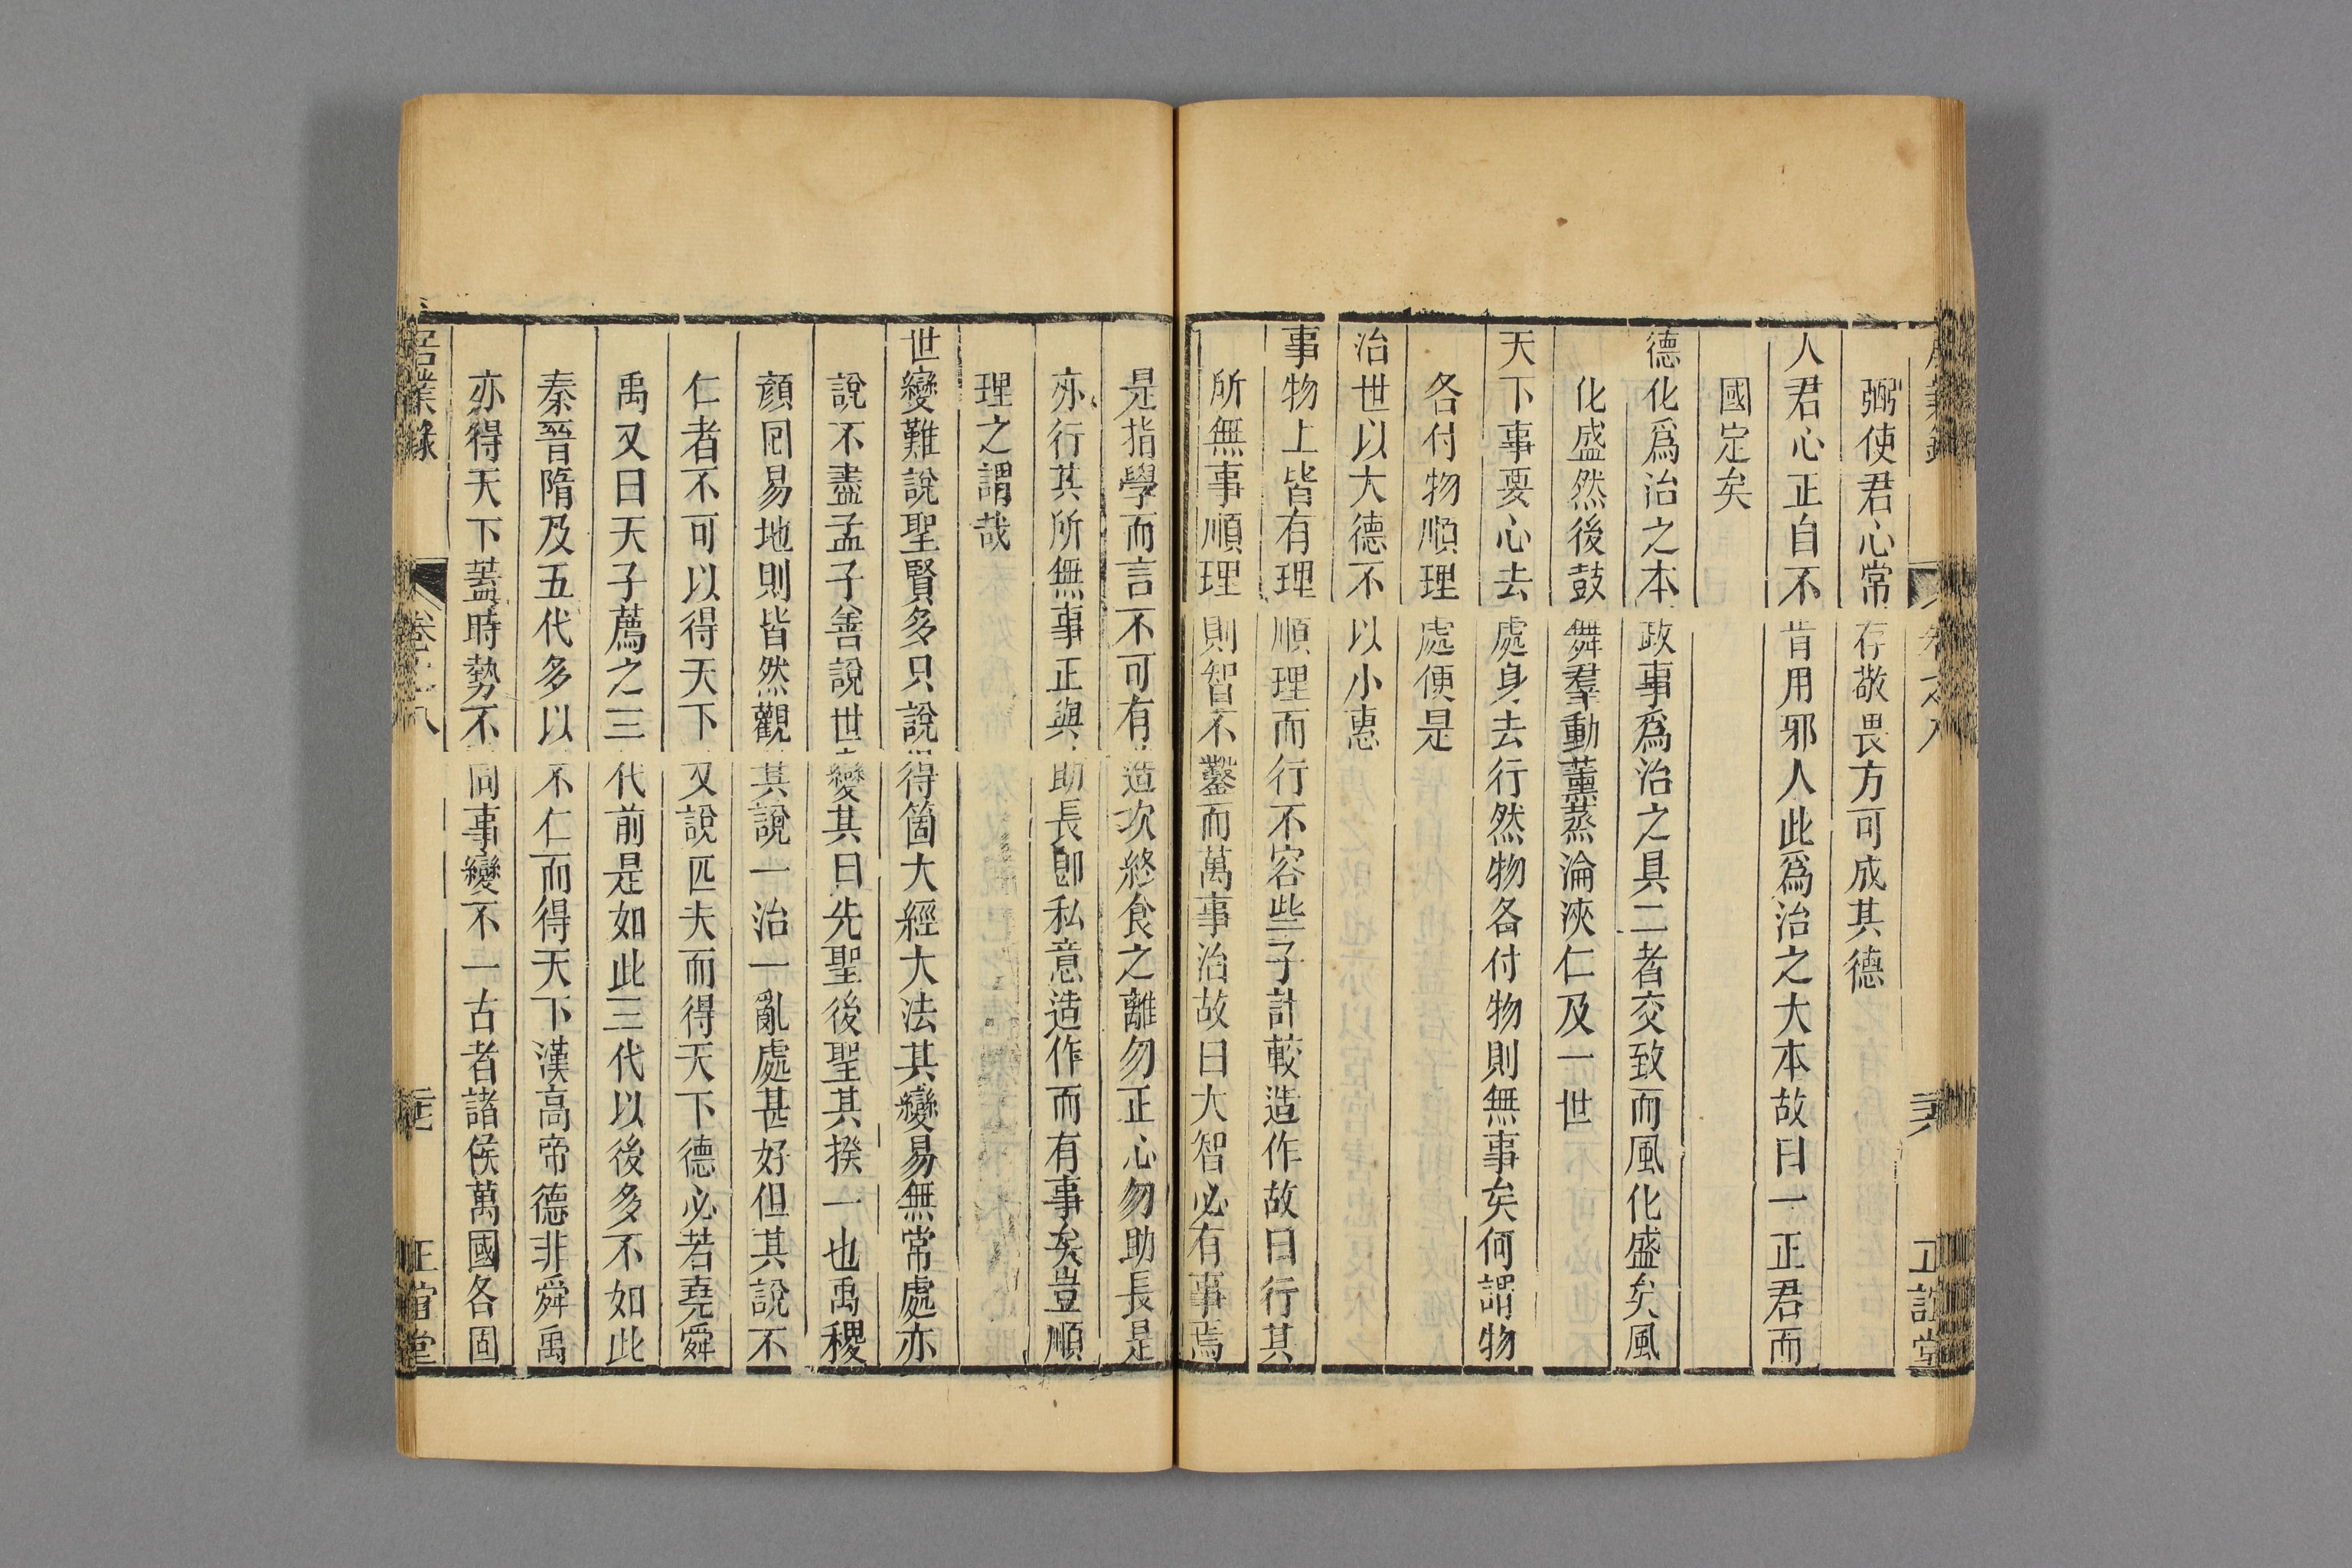 弼使君心常存敬畏方可成其德
人君心正自不肯用邪人此爲治之大本故曰一正君而
國定矣
德化爲治之本政事爲治之具二者交致而風化盛矣風
化盛然後鼓舞羣動薫蒸淪浹仁及一世
天下事要心去處身去行然物各付物則無事矣何謂物
各付物順理處便是
治世以大德不以小惠
事物上皆有理順理而行不容些子計較造作故曰行其
所無事順理則智不鑿而萬事治故曰大智必有事焉
是指學而言不可有造次終食之離勿正心勿助長是
亦行其所無事正與助長卽私意造作而有事矣豈順
理之謂哉
世變難說聖賢多只說得箇大經大法其變易無常處亦
說不盡孟子善說世變其曰先聖後聖其揆一也禹稷
顏囘易地則皆然觀其說一治一亂處甚好但其說不
仁者不可以得天下又說匹夫而得天下德必若堯舜
禹又曰天子薦之三代前是如此三代以後多不如此
秦晉隋及五代多以不仁而得天下漢高帝德非舜禹
亦得天下蓋時勢不同事變不一古者諸侯萬國各固
居業錄 卷之八 正誼堂